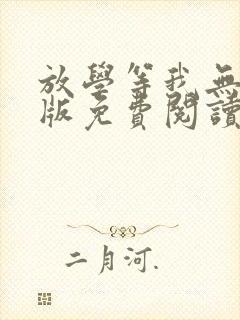 放學等我無
版免費閱讀
二月河.